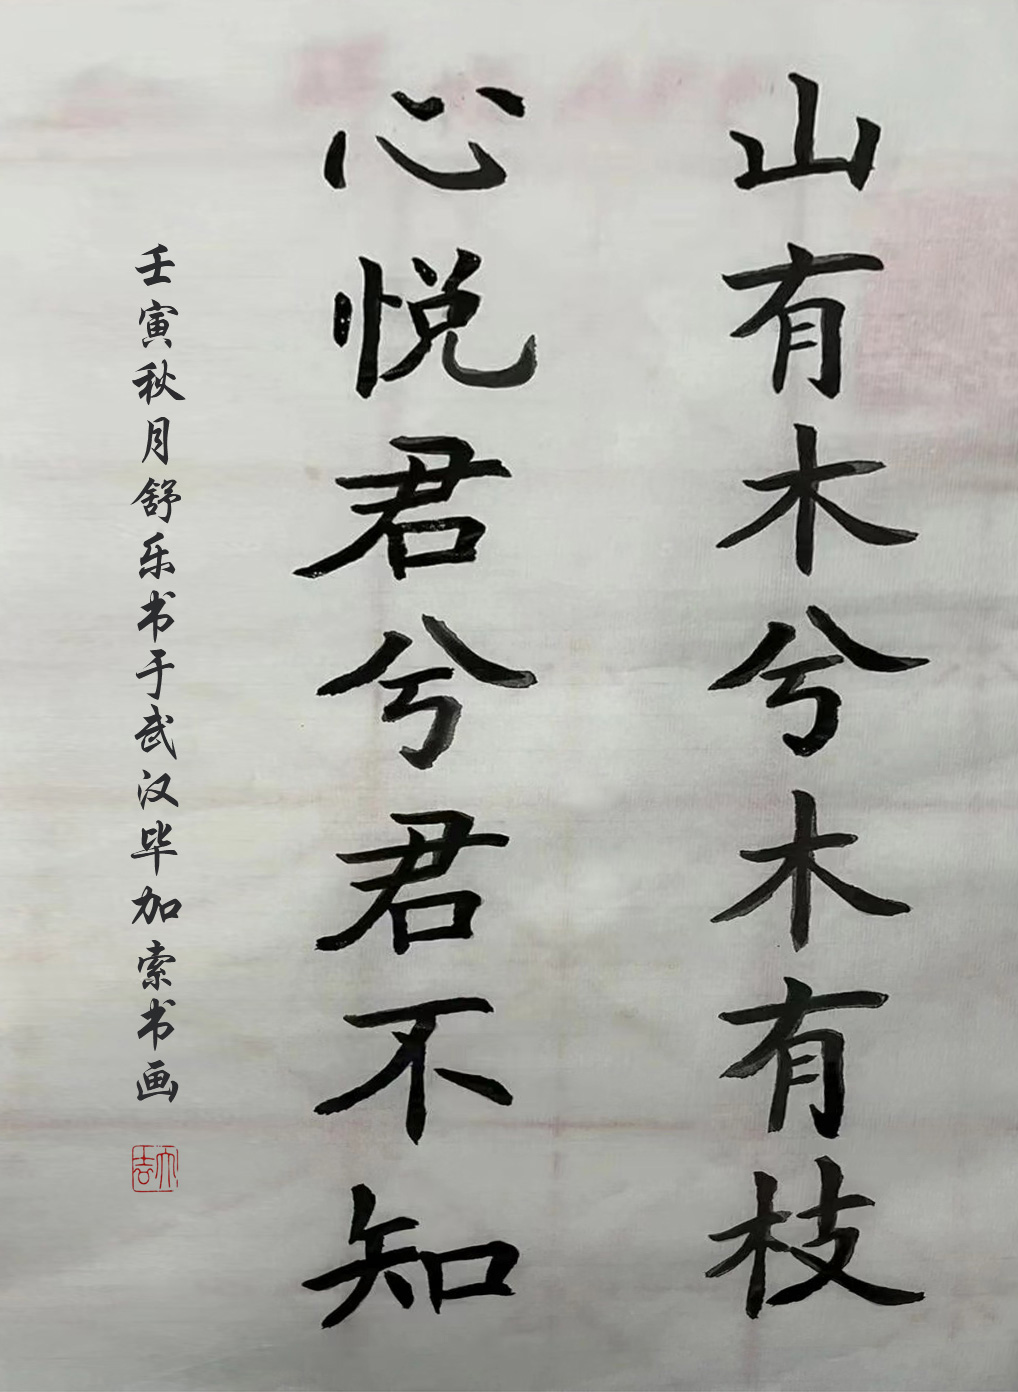 山有木兮木有枝
心悦君兮君不知
壬寅秋月舒乐书于武汉毕加索书画
大吉